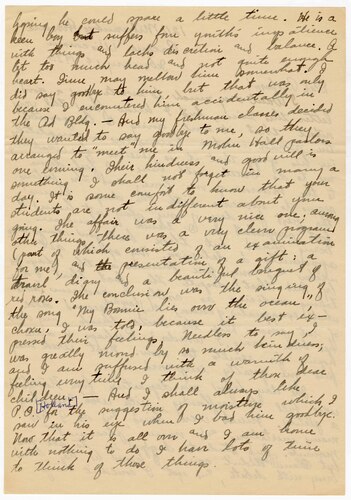 hoping he could spare a little time. He is a
keen boy but suffers from youth's impatience
with things and lacks discretion and balance. A
bit too much head and not quite enough
heart. Time may mellow him somewhat. I
did say goodbye to him, but that was only
because I encountered him accidentally in
the Ad Bldg. — And my freshman classes decided
they wanted to say goodbye to me, so they
arranged to "meet" me in Mother Hall parlors
one evening. Their kindness and good will is
something I shall not forget in many a
day. It is some comfort to know that your
students are not indifferent about your
going. The affair was a very nice one; among
other things there was a very clever program
(part of which consisted of an examination
for me, and the presentation of a gift: a
travel diary and a beautiful bouquet of
red roses. The conclusion was the singing of
the song "My Bonnie lies over the ocean,"
chosen, I was told, because it best ex-
pressed their feelings. Needless to say, I
was greatly moved by so much kindness;
and I am suffused with a warmth of
feeling every time I think of those dear
children. — And I shall always like
P.O. Holland for the suggestion of moisture which I
saw in his eye when I bad him goodbye.
Now that it is all over and I am home
with nothing to do I have lots of time
to think of those things.